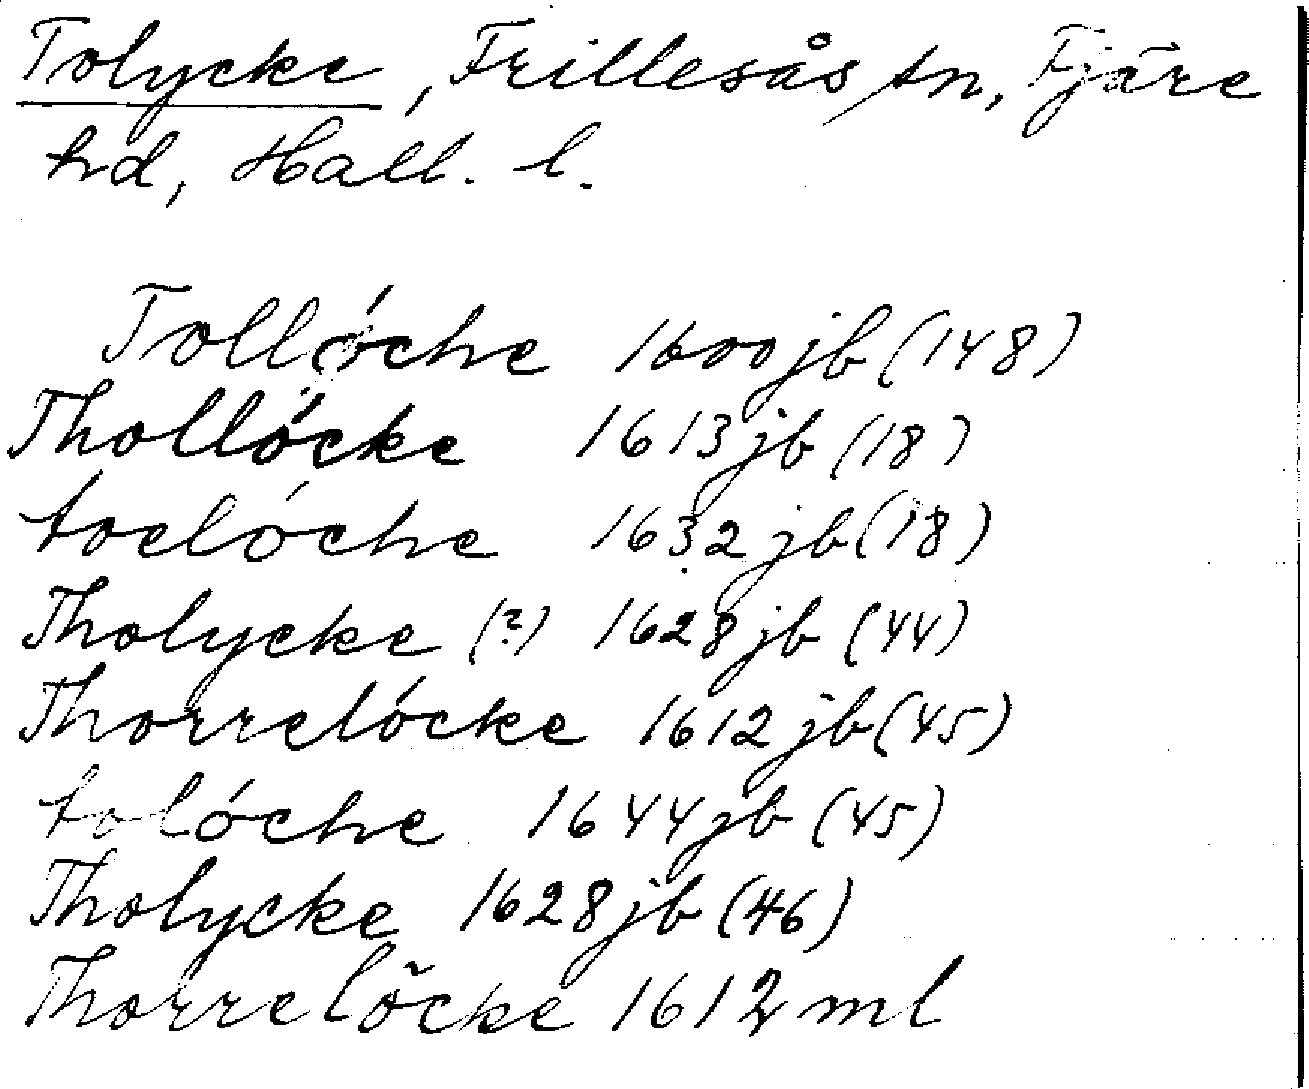 Tolycke, Frillesås sn, Fjäre
hd, Hall. l.
Tollóche 1600 jb (148)
Thollócke 1613 jb (18)
toelóche 1632 jb (18)
Tholycke (?) 1628 jb (44)
Thorrelócke 1612 jb (45)
tolóche 1644 jb (45)
Tholycke 1628 jb (46)
Thorrelõcke 1612 ml